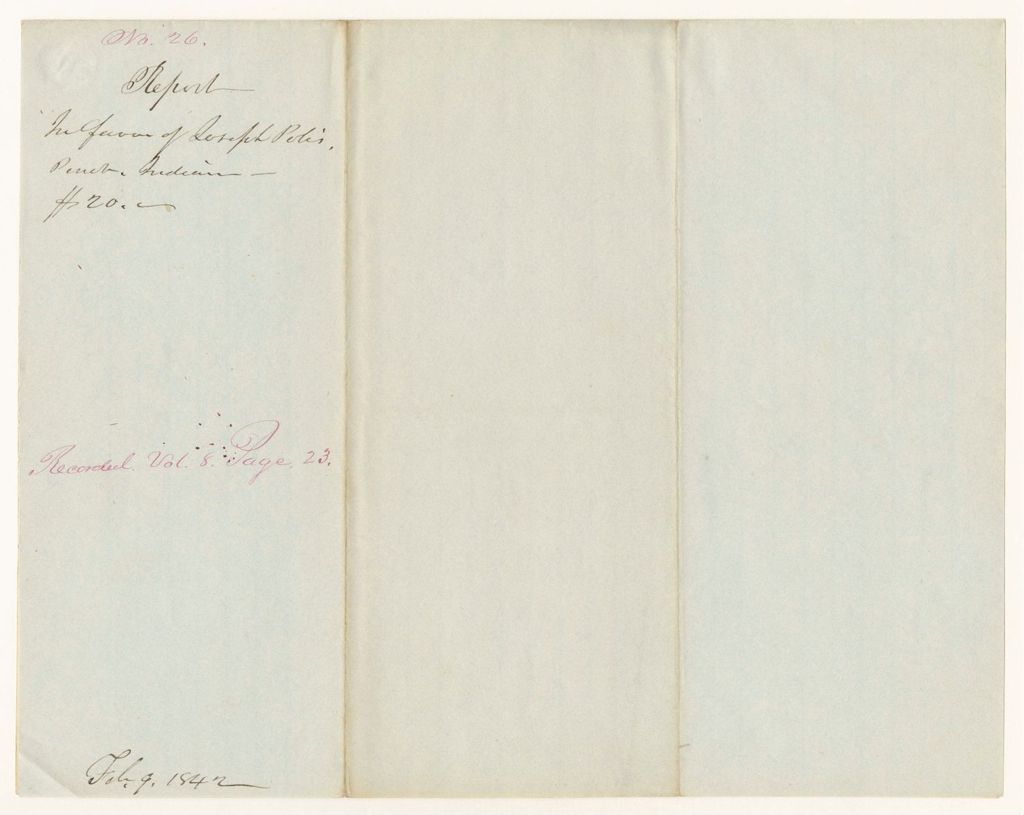 No. 26.
Report
In favor of Joseph Polis,
Penob. Indian —
$20.
Recorded. Vol. 8. Page. 23.
Feb. 9. 1842